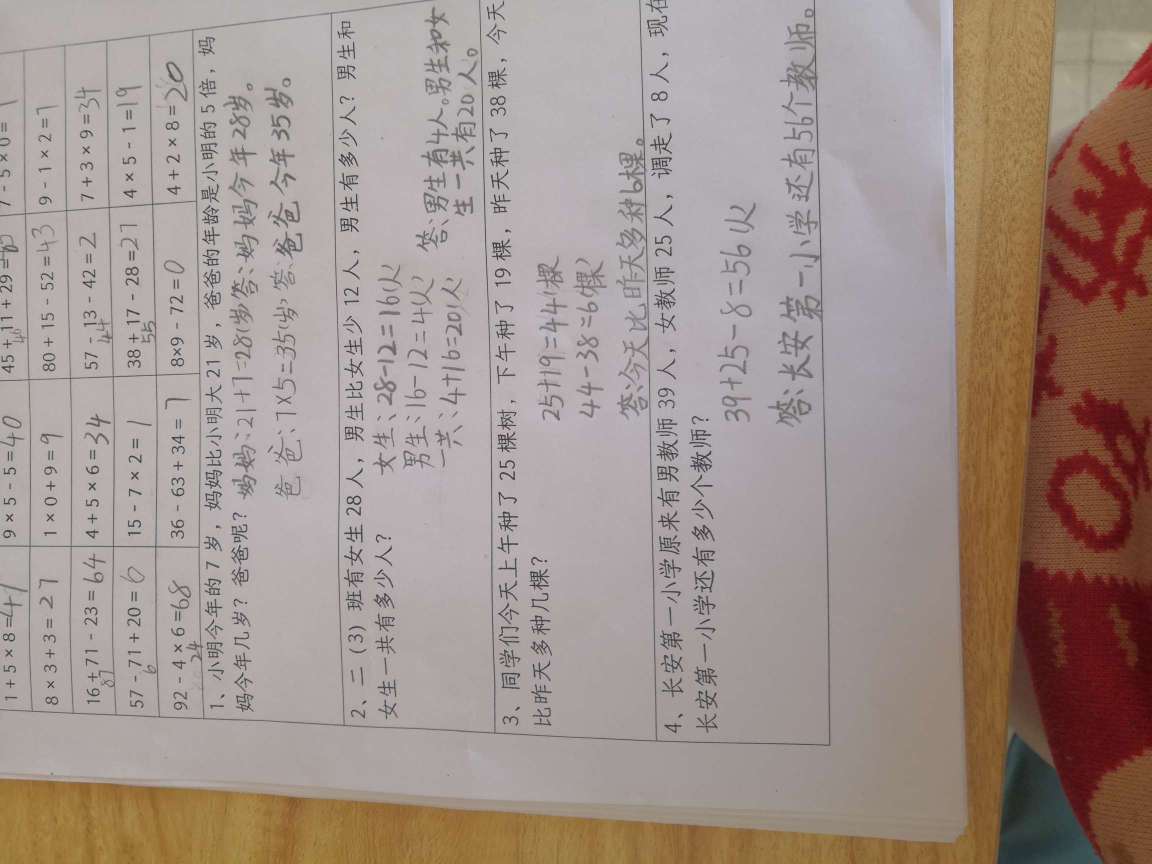 1+5×8=49 9×5-5=40 45+11+29=85 7-5×0=7
8×3+3=27 1×0+9=9 80+15-52=43 9-1×2=7
16+71-23=64 4+5×6=34 57-13-42=2 7+3×9=34
87 44
57-71+20=6 15-7×2=1 38+17-28=27 4×5-1=19
6 55
92-4×6=68 36-63+34=7 8×9-72=0 4+2×8=20
24
1、小明今年的7岁，妈妈比小明大21岁，爸爸的年龄是小明的5倍，妈
妈今年几岁？爸爸呢？ 妈妈:21+7=28(岁)答:妈妈今年28岁。
爸爸:7×5=35(岁)答:爸爸今年35岁。
2、二（3）班有女生28人，男生比女生少12人，男生有多少人？男生和
女生一共有多少人？ 女生:28-12=16人
男生:16-12=4人 答:男生有4人。男生和女
一共:4+16=20人 生一共有20人。
3、同学们今天上午种了25棵树，下午种了19棵，昨天种了38棵，今天
比昨天多种几棵？ 25+19=44(棵
44-38=6(棵)
答:今天比昨天多种6棵。
4、长安第一小学原来有男教师39人，女教师25人，调走了8人，现在
长安第一小学还有多少个教师？ 39+25-8=56人
答:长安第一小学还有56个教师。